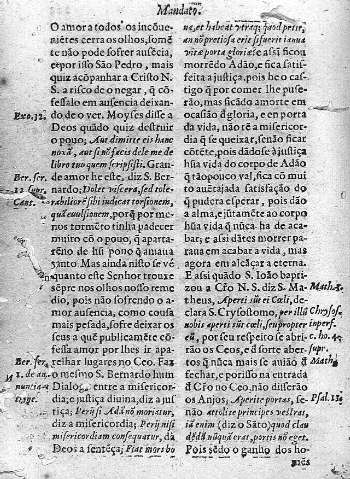 Mandato.
O amor a todos os incõue-
niẽtes cerra os olhos, somẽ
te não pode sofrer ausẽcia,
e por isso São Pedro, mais
quiz acõpanhar a Cristo N.
S. a risco de o negar, q̃ cõ-
fessalo em ausencia deixan-
do de o ver. Moyses disse a
Exo. 32.
Deos quãdo quiz destruir
o pouo; Aut dimitte eis hanc
noxã, aut si nõ facis dele me de
libro tuo quem scripsisti. Gran-
Ber. ser.
de amor he este, diz S. Ber-
nardo; Dolet viscera, sed tole-
12 supr.
rabiliorẽ sibi indicat torsionem,
Cant.
quã euulsionem, porq̃ por me-
nos tormẽto tinha padecer
muito cõ o pouo, q̃ aparta-
rẽno de si o pouo q̃ amaua
tanto. Mas ainda nisto se vé
quanto este Senhor trouxe
sẽpre nos olhos nosso reme
dio, pois não sofrendo o a-
mor ausencia, como cousa
mais pesada, sofre deixar os
seus a que publicamẽte cõ-
fessa amor por lhes ir apa-
Ber. ser.
relhar lugares no Ceo. Faz
o mesmo S. Bernardo hum
1. de an-
Dialog. entre a misericor-
nuntia-
dia, e justiça diuina, diz a jus
tiça; Perij si Adã nõ moriatur,
diz a misericordia; Perij nisi
misericordiam consequatur, dà
Deos a sentẽça; Fiat mors bo
na, et habeat vterq̃; quod petit,
an nõ pretiosa erit si fuerit ianua
vitæ porta gloriæ e assi ficou
morrẽdo Adão, e fica satis-
feita a justiça, pois he o cas-
tigo q̃ por comer lhe puse-
rão, mas ficãdo a morte em
ocasião de gloria, e en porta
da vida, não rẽ a misericor-
dia q̃ se queixar, senão ficar
cõtẽte, pois dãdose à justica
hũa vida do corpo de Adão
q̃ tãopouco val, fica cõ mui
to auẽtajada satisfação do
q̃ pudera esperar, pois dão
a alma, e jũtamẽte ao corpo
hũa vida q̃ nũca ha de aca-
bar; e assi dãtes morrer pa-
raua em acabar a vida, mas
agora em alcãçar a eterna.
E assi quãdo S. Ioão bapti-
zou a Cr̃o N. S. diz S. Ma-
theus, Aperti sũt ei Cœli, de-
clara S. Crysostomo, per illũ
nobis aperti sũt cæli, seu propter
eũ, por seu respeito se abri-
rão os Ceos, e d sorte aber-
tos q̃ nũca mais se auião d̃
Math.
fechar, e porisso na entrada
d̃ Cr̃o no Ceo, não disserão
Psal.
os Anjos; Aperite portas, se-
não attolite principes vestras,
iã enim (diz o Sãto) quod clau
dẽdũ nũquã erat, portis nõ eget.
Pois sẽdo o ganho dos ho-